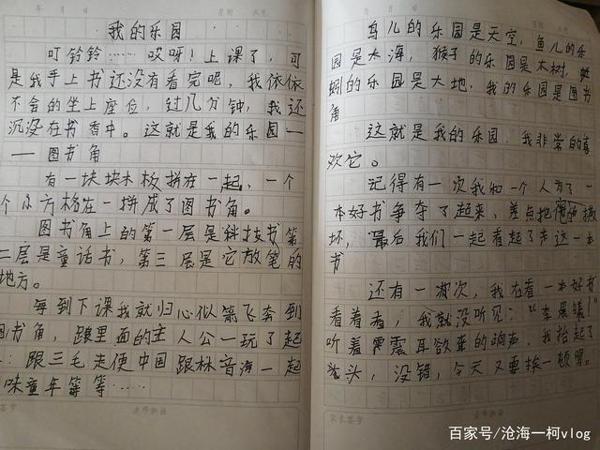 我的乐园
叮铃铃……哎呀!上课了,可
是我手上书还没有看完呢,我依依
不舍的坐上座位,过几分钟,我还
沉浸在书香中。这就是我的乐园—
—图书角
有一块块木板拼在一起,一个
个小方格在一拼成了图书角。
图书角上的第一层是科技书第
二层是童话书,第三层是它放笔的
地方。
每到下课我就归心似箭飞奔到
图书角,跟里面的主人公一玩了起
:跟三毛走便中国跟林音海一起
味童年等等……
鸟儿的乐园是天空,鱼儿的乐
园是大海,猴子的乐园是木树,
蚓的乐园是大地,我的乐园是图书
角
这就是我的乐园,我非常的喜
欢它。
记得有一次我和一个人为了一
本好书争夺了起来,差点把它撕
坏,最后我们一起看起了走这一本
书
还有一次,我在看一本好书
看着看,我就没听见:“李晨曦!”
听着震耳欲聋的响声,我抬起了
头,没错,今天又要挨一顿骂。
百家号/沧海一柯vlog